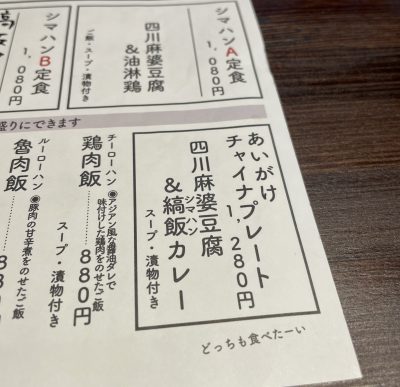 シマハンA定食
1,080円
四川麻婆豆腐
&油淋鶏
ご飯・スープ・漬物付き
シマハンB定食
1,080円
盛りにできます
あいがけ
チャイナプレート
1,280円
四川麻婆豆腐
シマハン
&縞飯カレー
スープ・漬物付き
どっちも食べたーい
チーローハン
鶏肉飯
◉アジアン風な醤油ダレで
味付けした鶏肉をのせたご飯
880円
スープ・漬物付き
ルーローハン
魯肉飯
◉豚肉の甘辛煮をのせたご飯